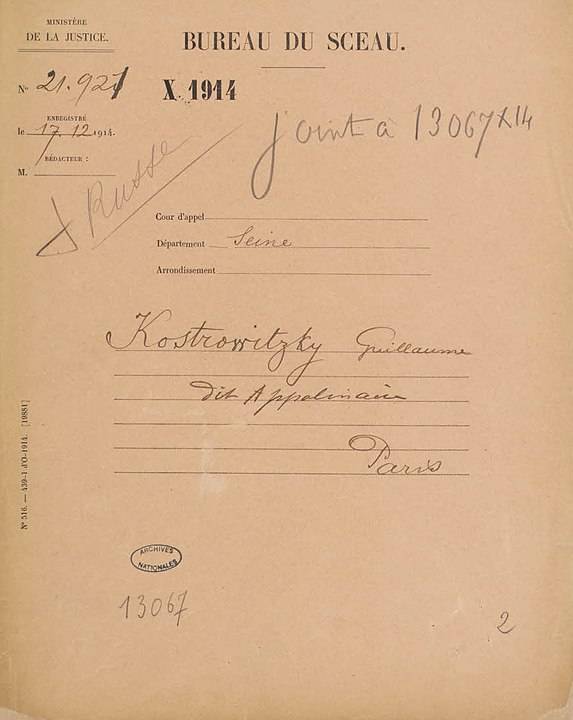 MINISTÈRE
DE LA JUSTICE.
BUREAU DU SCEAU.
No 21.921
X. 1914
ENREGISTRÉ
le 17.12 1914.
joint à 13067 X 14
RÉDACTEUR :
M.
Russe
Cour d'appel
Département Seine
Arrondissement
Kostrowitzky Guillaume
dit Appolinaire
Paris
No 516. — 439-1 d'O-1914. [19881]
ARCHIVES
NATIONALES
13067
2